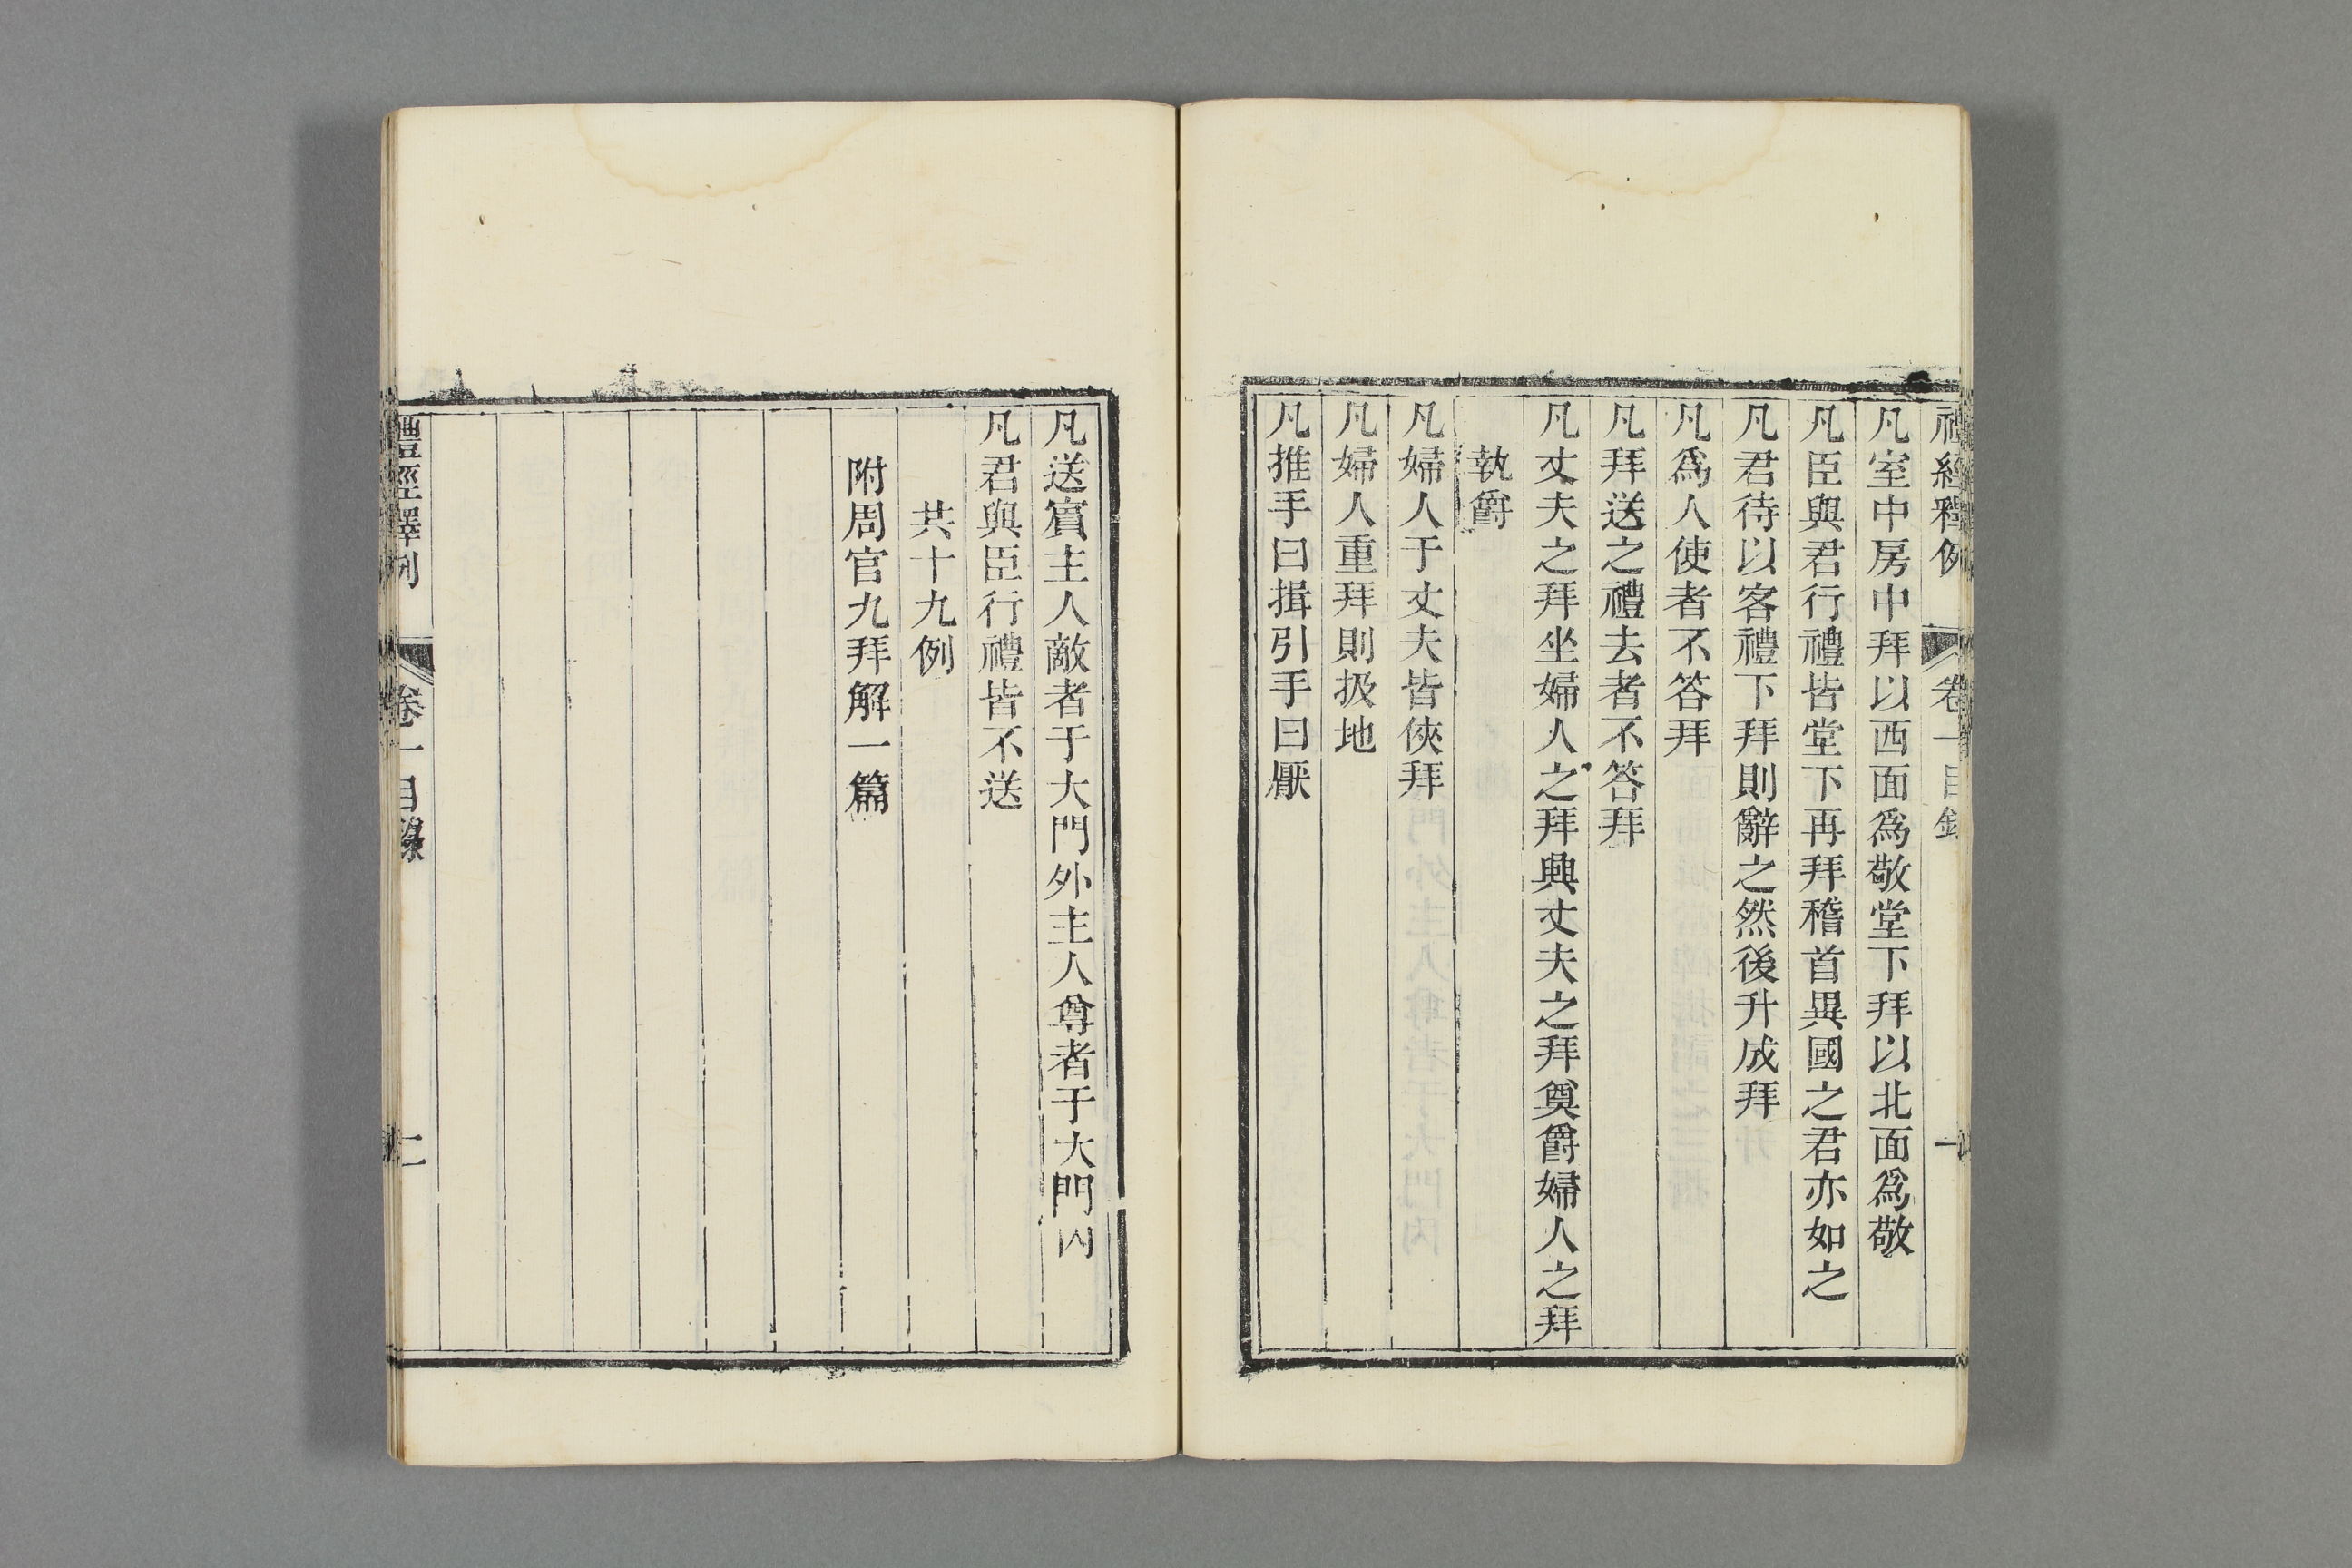 禮經釋例 卷一目錄 一
凡室中房中拜以西面爲敬堂下拜以北面爲敬
凡臣與君行禮皆堂下再拜稽首異國之君亦如之
凡君待以客禮下拜則辭之然後升成拜
凡爲人使者不答拜
凡拜送之禮去者不答拜
凡丈夫之拜坐婦人之拜興丈夫之拜奠爵婦人之拜
執爵
凡婦人于丈夫皆俠拜
凡婦人重拜則扱地
凡推手曰揖引手曰厭
凡送賓主人敵者于大門外主人尊者于大門內
凡君與臣行禮皆不送
共十九例
附周官九拜解一篇
禮經釋例 卷一目錄 二